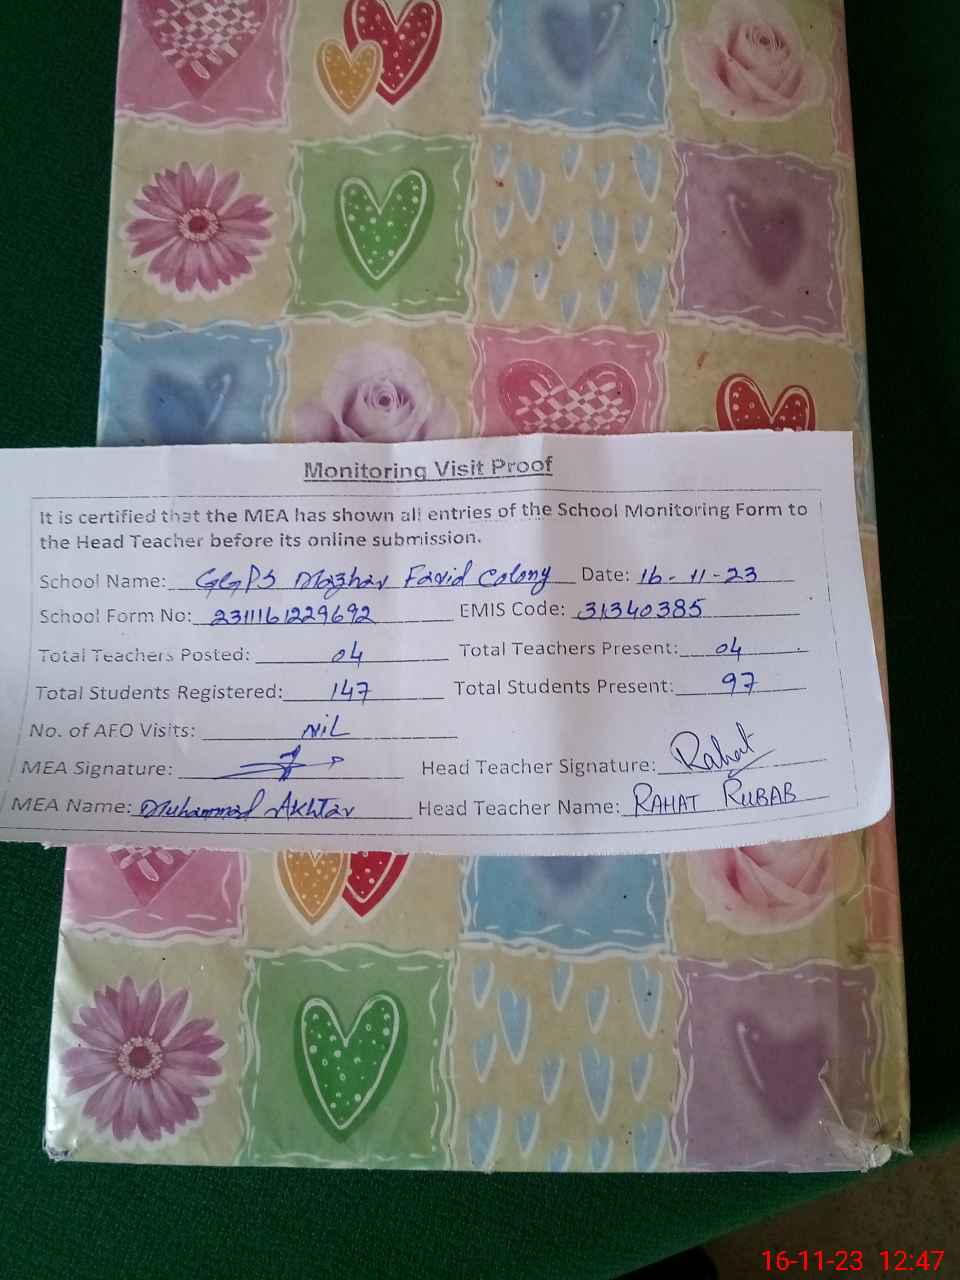 Monitoring Visit Proof
It is certified that the MEA has shown all entries of the School Monitoring Form to
the Head Teacher before its online submission.
School Name: GGPS Mazhar Farid Colony Date: 16-11-23
School Form No: 2311161229692 EMIS Code: 31340385
Total Teachers Posted: 04 Total Teachers Present: 04
Total Students Registered: 147 Total Students Present: 97
No. of AEO Visits: NiL
MEA Signature: Head Teacher Signature: Rahat
MEA Name: Muhammad Akhtar Head Teacher Name: RAHAT RUBAB
16-11-23 12:47